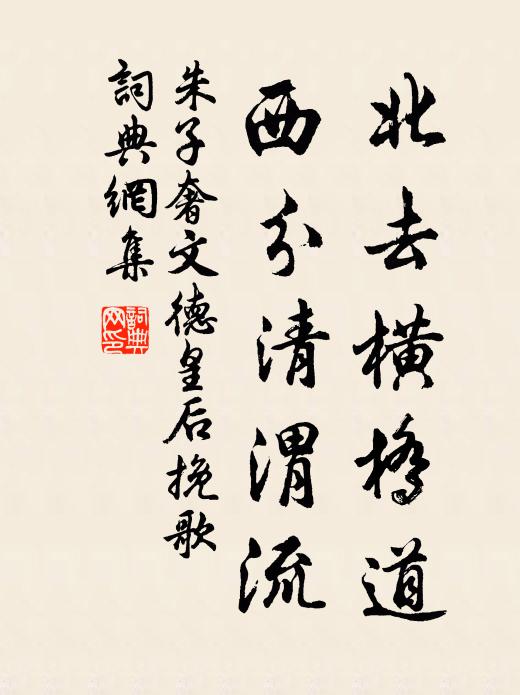 北去橫橋道
西分清渭流
朱子奢文德皇后挽歌
詞典網集
詞典网印